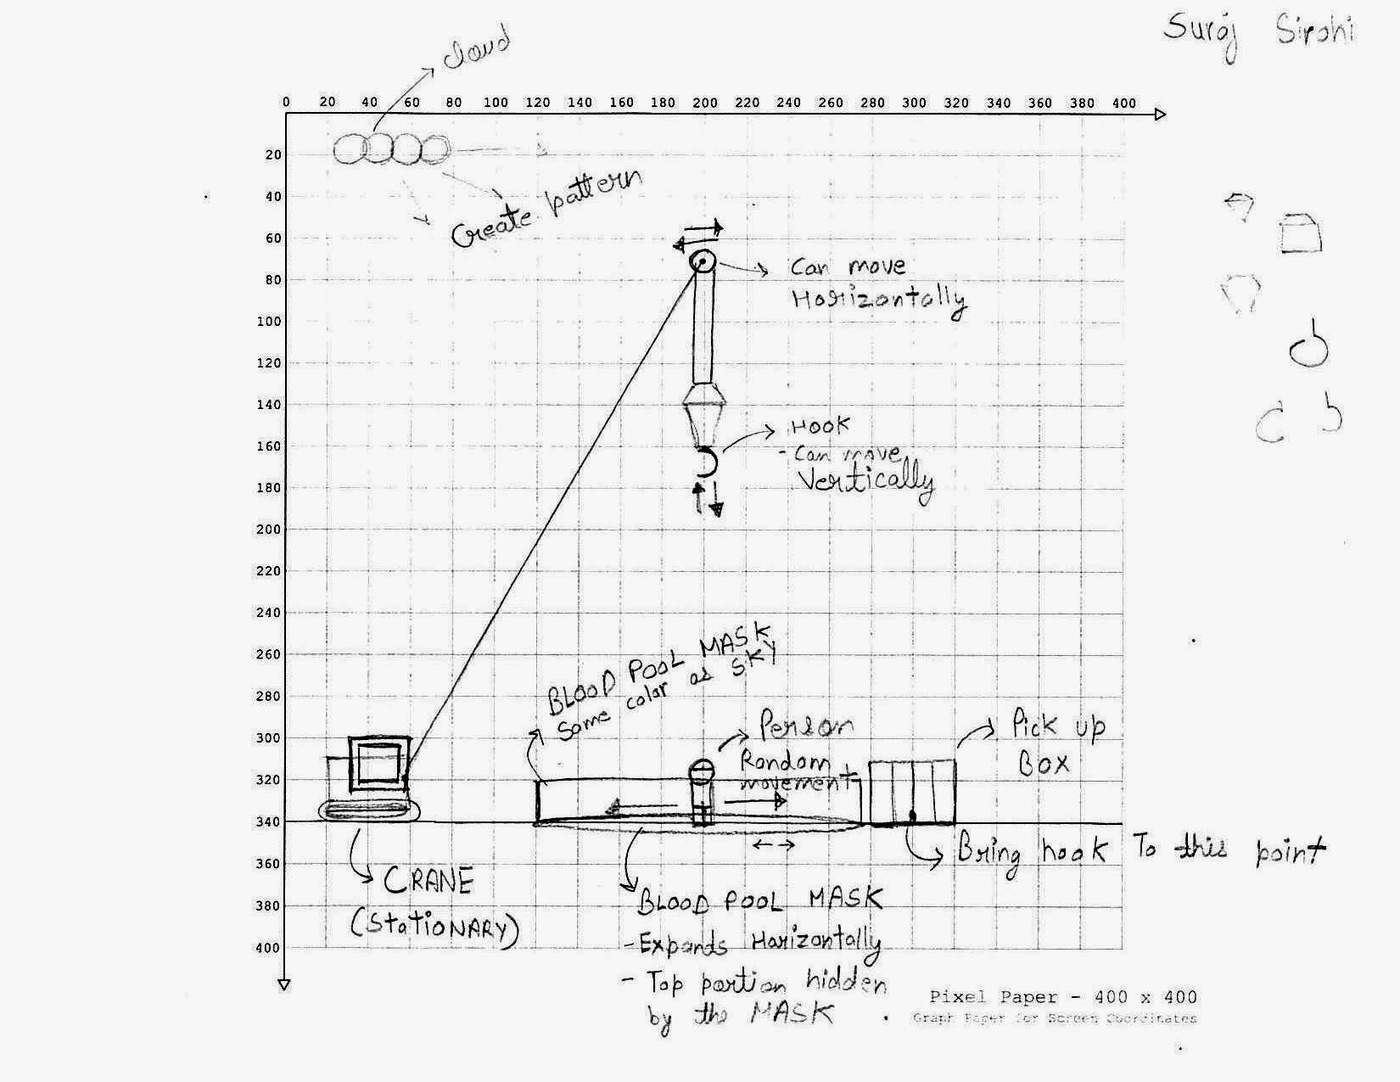 Suraj Sirohi
cloud
0 20 40 60 80 100 120 140 160 180 200 220 240 260 280 300 320 340 360 380 400
20
40
60
80
100
120
140
160
180
200
220
240
260
280
300
320
340
360
380
400
Create pattern
Can move
Horizontally
HOOK
- Can move
Vertically
BLOOD POOL MASK
Same color as SKY
Person
Random
movement
Pick up
BOX
Bring hook To this point
CRANE
(StatiONARY)
BLOOD POOL MASK
- Expands Horizontally
- Top portion hidden
by the MASK
Pixel Paper - 400 x 400
Graph Paper for Screen Coordinates